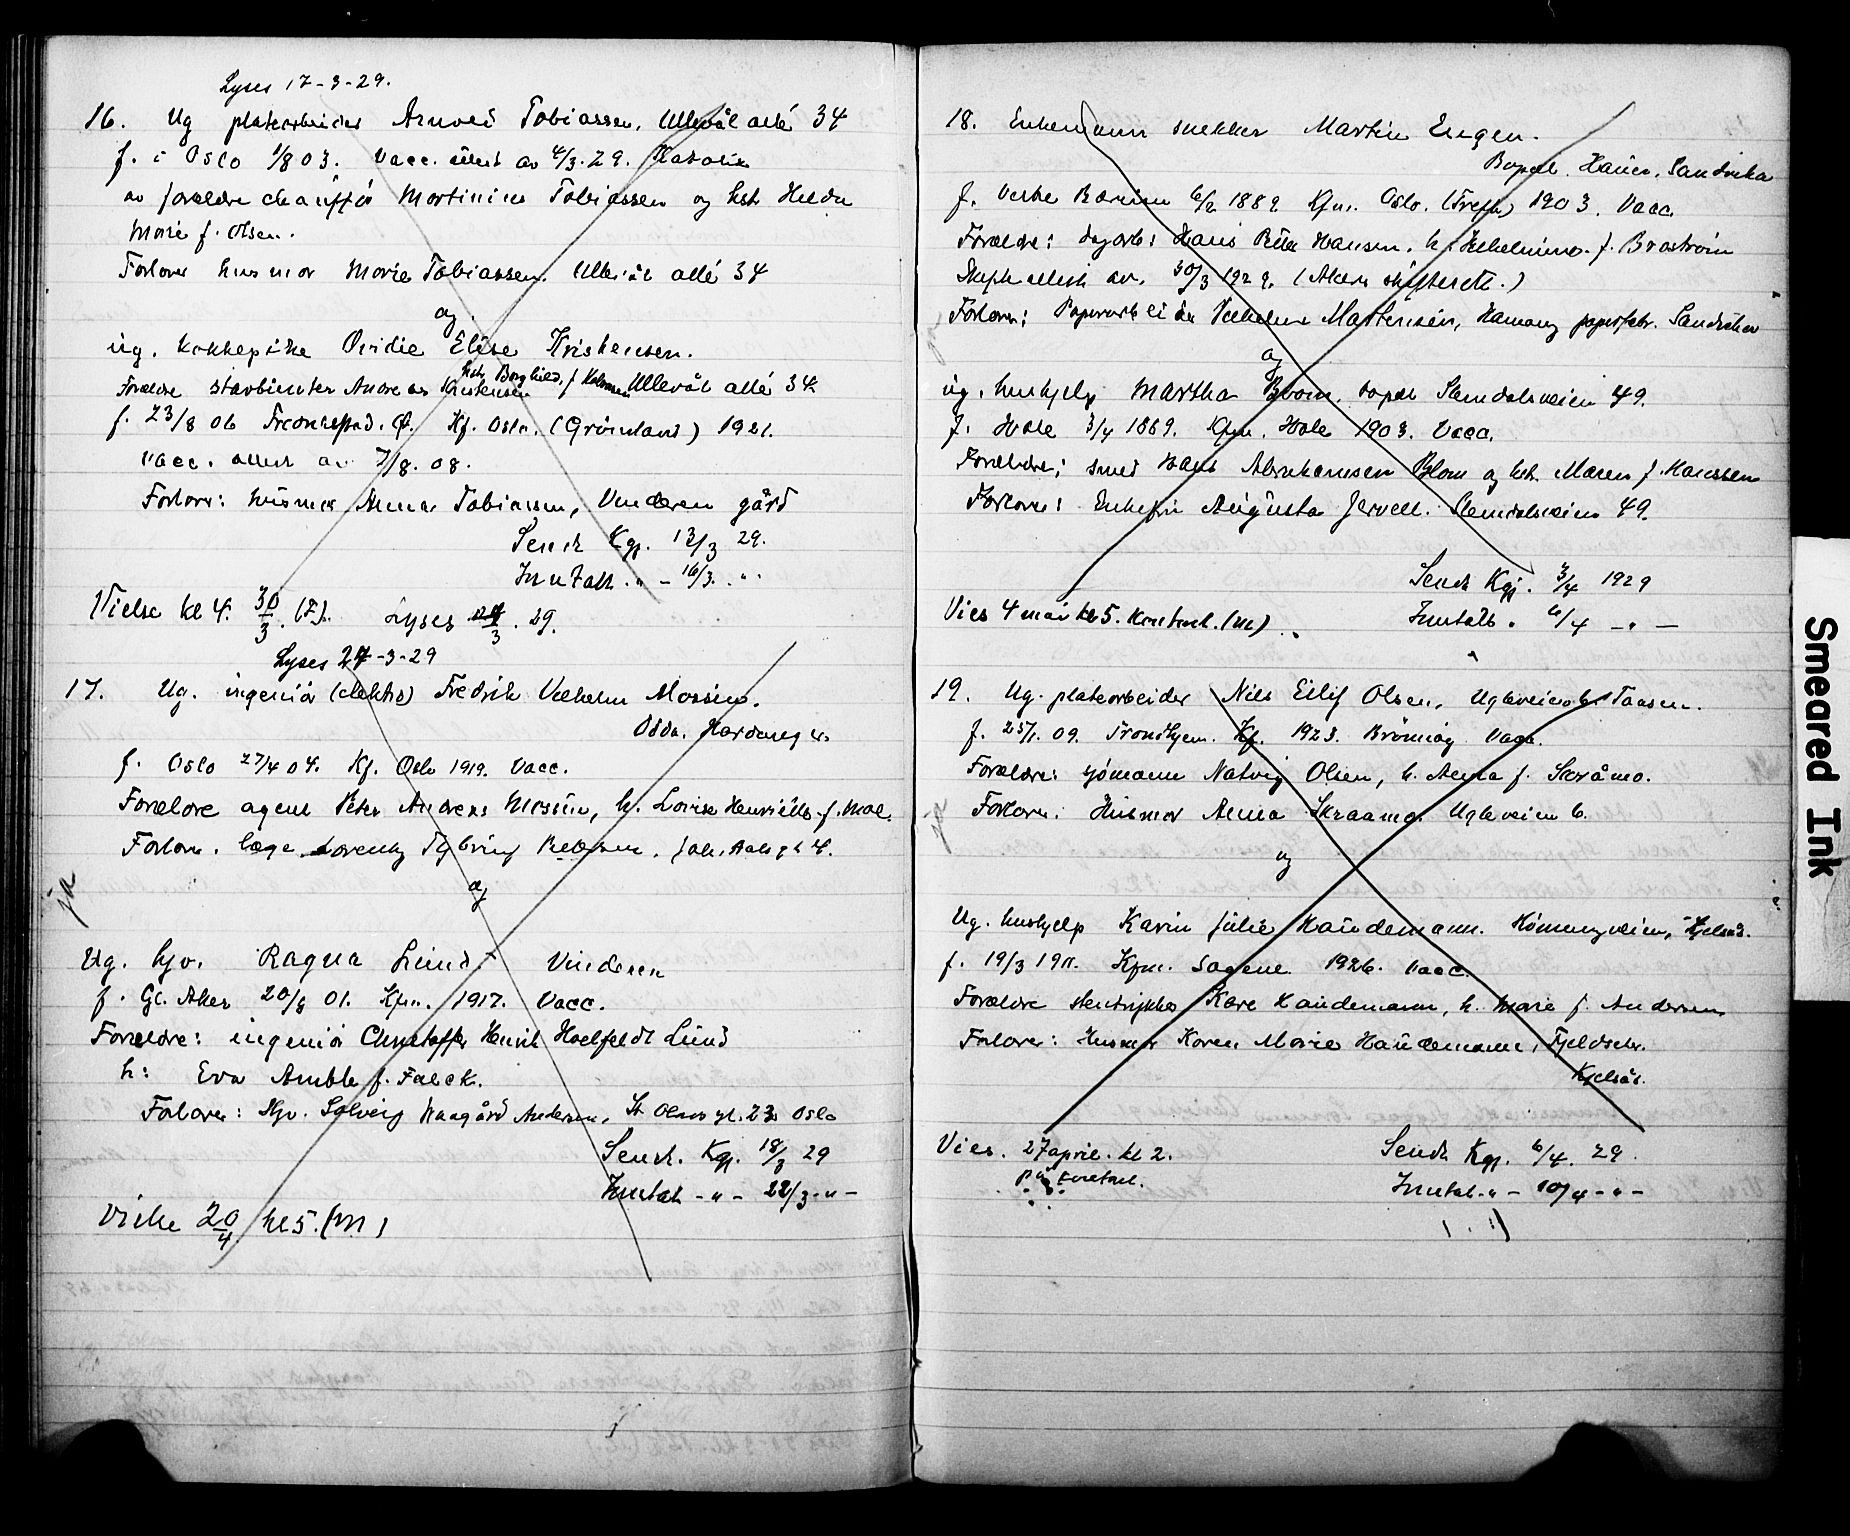 Lyses 17-3-29.
16. Ug platearbeider Arnved Tobiassen, Ullevål allé 34
f. i Oslo 1/8 03. Vacc. attest av 4/3.29.
av forældre chauffør Martinius Tobiassen og hst Hilda
Marie f. Olsen.
Forlover husmor Marie Tobiassen. Ullevål allé 34
og.
ug. kokkepike Ovidie Elise Kristensen.
hstr Borghild, f
Forældre Andreas Kristensen Ullevål allé 34
f. 23/8 06 Fredrikstad. Ø. Kf. Oslo. (Grønland) 1921.
Vacc. attest av 7/8. 08.
Forlover: husmor Anna Tobiassen, Vinderen gård
Sendt Kgj. 13/3 29.
Inntatt " - 16/3. "
Vielse kl 4. 30/3. (F). Lyses 24/3. 29.
Lyses 24-3-29
17. Ug. ingeniør (elektro) Fredrik Vilhelm Mossin.
Odda. Hardanger.
f. Oslo 27/4 04. Kf. Oslo 1919. Vacc.
Forældre agent Peter Andreas Mossin, h. Lovise Henriette f. Moe.
Forlover. læge Lorentz Tybring
og
ja
Ug. hjv. Ragna Lund Vinderen
f. Gl. Aker 20/8 01. Kfm. 1917. Vacc.
Forældre: ingeniør Christoffer Henrik Hoelfeldt Lund
h: Eva Amble f. Falck.
Forlover: Hjv. Solveig Andersen, St Olavs gt. 23 Oslo
Sendt. Kgj. 18/3 29
Inntat - " - 22/3 - " -
Vielse 20/4 kl 5. (M)
18. Enkemann snekker Martin Engen.
Bopæl. Sandvika
f. Vestre Bærum 6/2 1889. Kfm. Oslo. (Trefn) 1903. Vacc.
Forældre: dagarb: Hans Hansen, h. Vilhelmine f. Broström
Skifteattest av. 30/3 1929. (Akers skifterett.)
Forlover: Papirarbeider Vilhelm Martinsen, Hamang papirfabr. Sandvika
og
ug. hushjelp Martha Blom, bopæl Slemdalsveien 49.
f. Hole 3/4 1889. Kfm. Hole 1903. Vacc.
Forældre: smed Hans Abrahamsen Blom og hst. Maren f. Hanssen
Forlover: Enkefru Augusta Jervell. Slemdalsveien 49.
Sendt Kgj. 3/4 1929
Inntatt " 6/4 - " -
Vies 4 mai kl 5. Kontoret. (M)
19. Ug. platearbeider Nils Eilif Olsen, Ugleveien 6. Taasen.
f. 25/1. 09. Trondhjem. Kf. 1923. Brønnøy Vacc.
Forældre: sjømann Natvig Olsen, h. Anna f. Skråmo.
Forlover. Husmor Anna Skraamo. Ugleveien 6.
og
Ug. hushjelp Karin Julie Haudemann. Kjelsås.
f. 19/3 1911. Kfm. Sagene 1926. Vacc.
Forældre stentrykker Kåre Haudemann, h. Marie f. Andersen
Forlover: Husmor Karen Marie Haudemann, Fjeldseter.
Kjelsås.
Vies. 27 april. kl 2. Sendt Kgj. 6/4. 29.
på kontoret. Inntat. " - 10/4 - " -
Smeared Ink